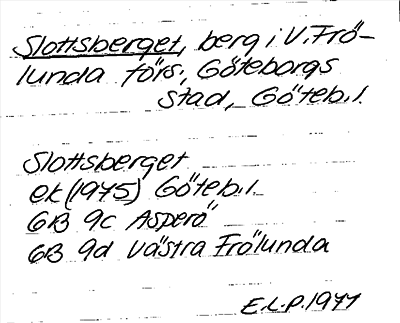 Slottsberget, berg i V. Frö-
lunda förs., Göteborgs
stad, Göteb. l.
Slottsberget
ek (1975) Göteb. l.
6B 9c Asperö
6B 9d Västra Frölunda
E.L.P. 1977